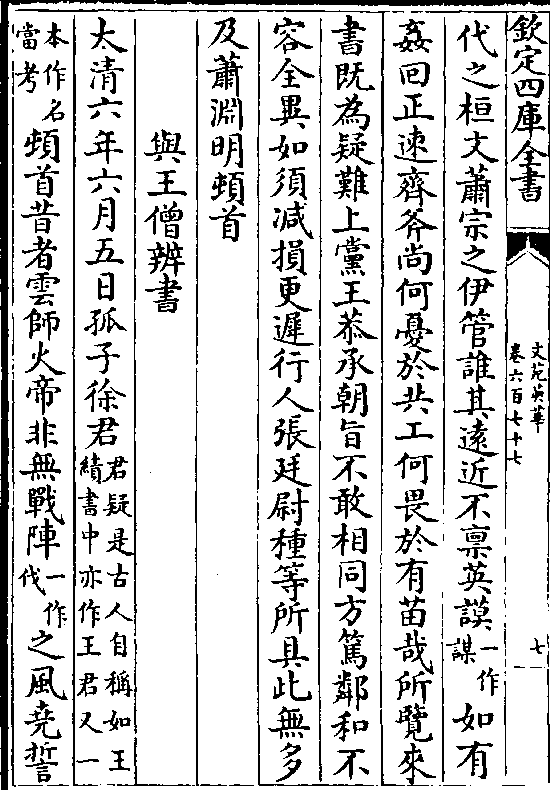 欽定四庫全書
文苑英華
卷六百七十七
七
代之桓文蕭宗之伊管誰其遠近不禀英謨一作謀如有
姦回正速齊斧尚何憂於共工何畏於有苗哉所覽來
書既為疑難上黨王恭承朝旨不敢相同方篤鄰和不
容全異如須減損更遲行人張廷尉種等所具此無多
及蕭淵明頓首
與王僧辨書
太清六年六月五日孤子徐君君疑是古人自稱如王績書中亦作王君又一
本作名當考頓首昔者雲師火帝非無戰陣一作伐之風堯誓